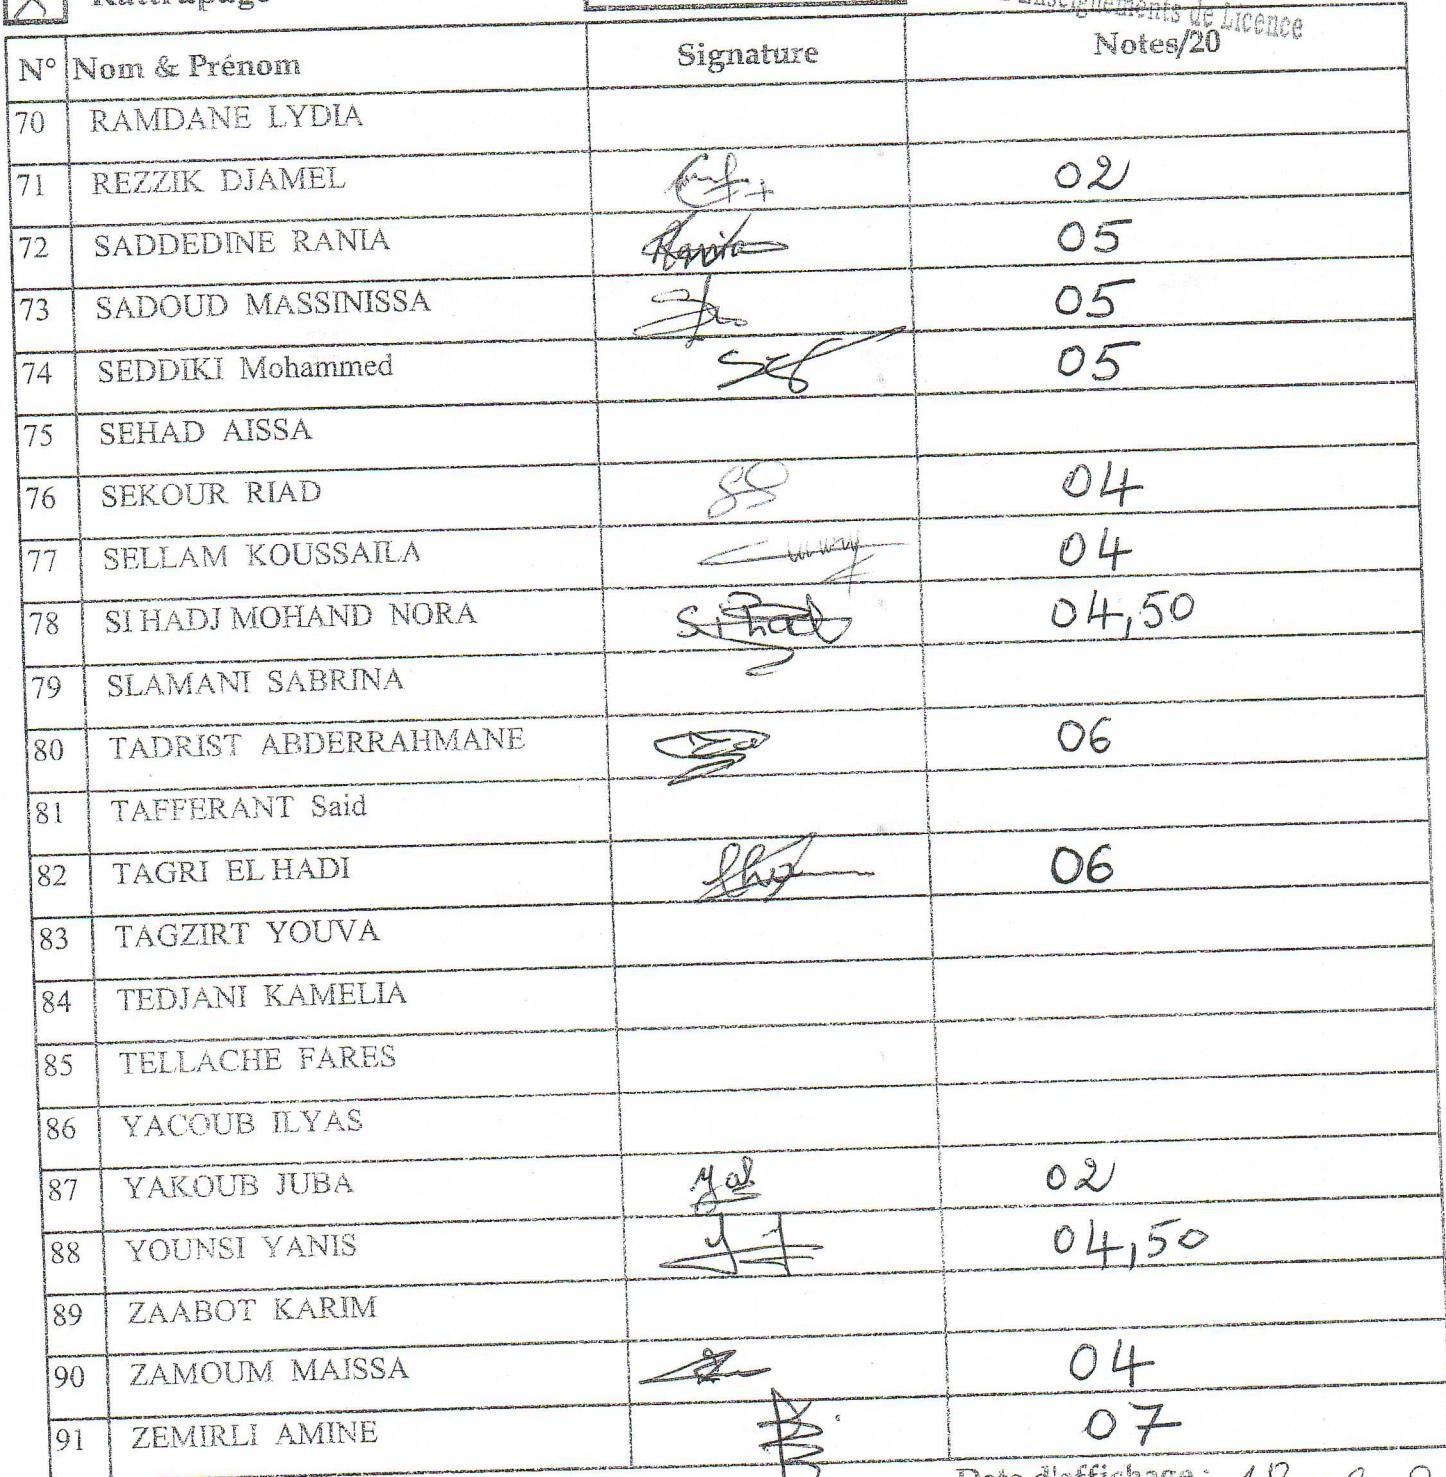 Rattrapage
Enseignements de Licence
N° Nom & Prénom Signature Notes/20
70 RAMDANE LYDIA
71 REZZIK DJAMEL 02
72 SADDEDINE RANIA Rania 05
73 SADOUD MASSINISSA 05
74 SEDDIKI Mohammed 05
75 SEHAD AISSA
76 SEKOUR RIAD 04
77 SELLAM KOUSSAILA 04
78 SI HADJ MOHAND NORA 04,50
79 SLAMANI SABRINA
80 TADRIST ABDERRAHMANE 06
81 TAFFERANT Said
82 TAGRI EL HADI 06
83 TAGZIRT YOUVA
84 TEDJANI KAMELIA
85 TELLACHE FARES
86 YACOUB ILYAS
87 YAKOUB JUBA 02
88 YOUNSI YANIS 04,50
89 ZAABOT KARIM
90 ZAMOUM MAISSA 04
91 ZEMIRLI AMINE 07
Date d'affichage :